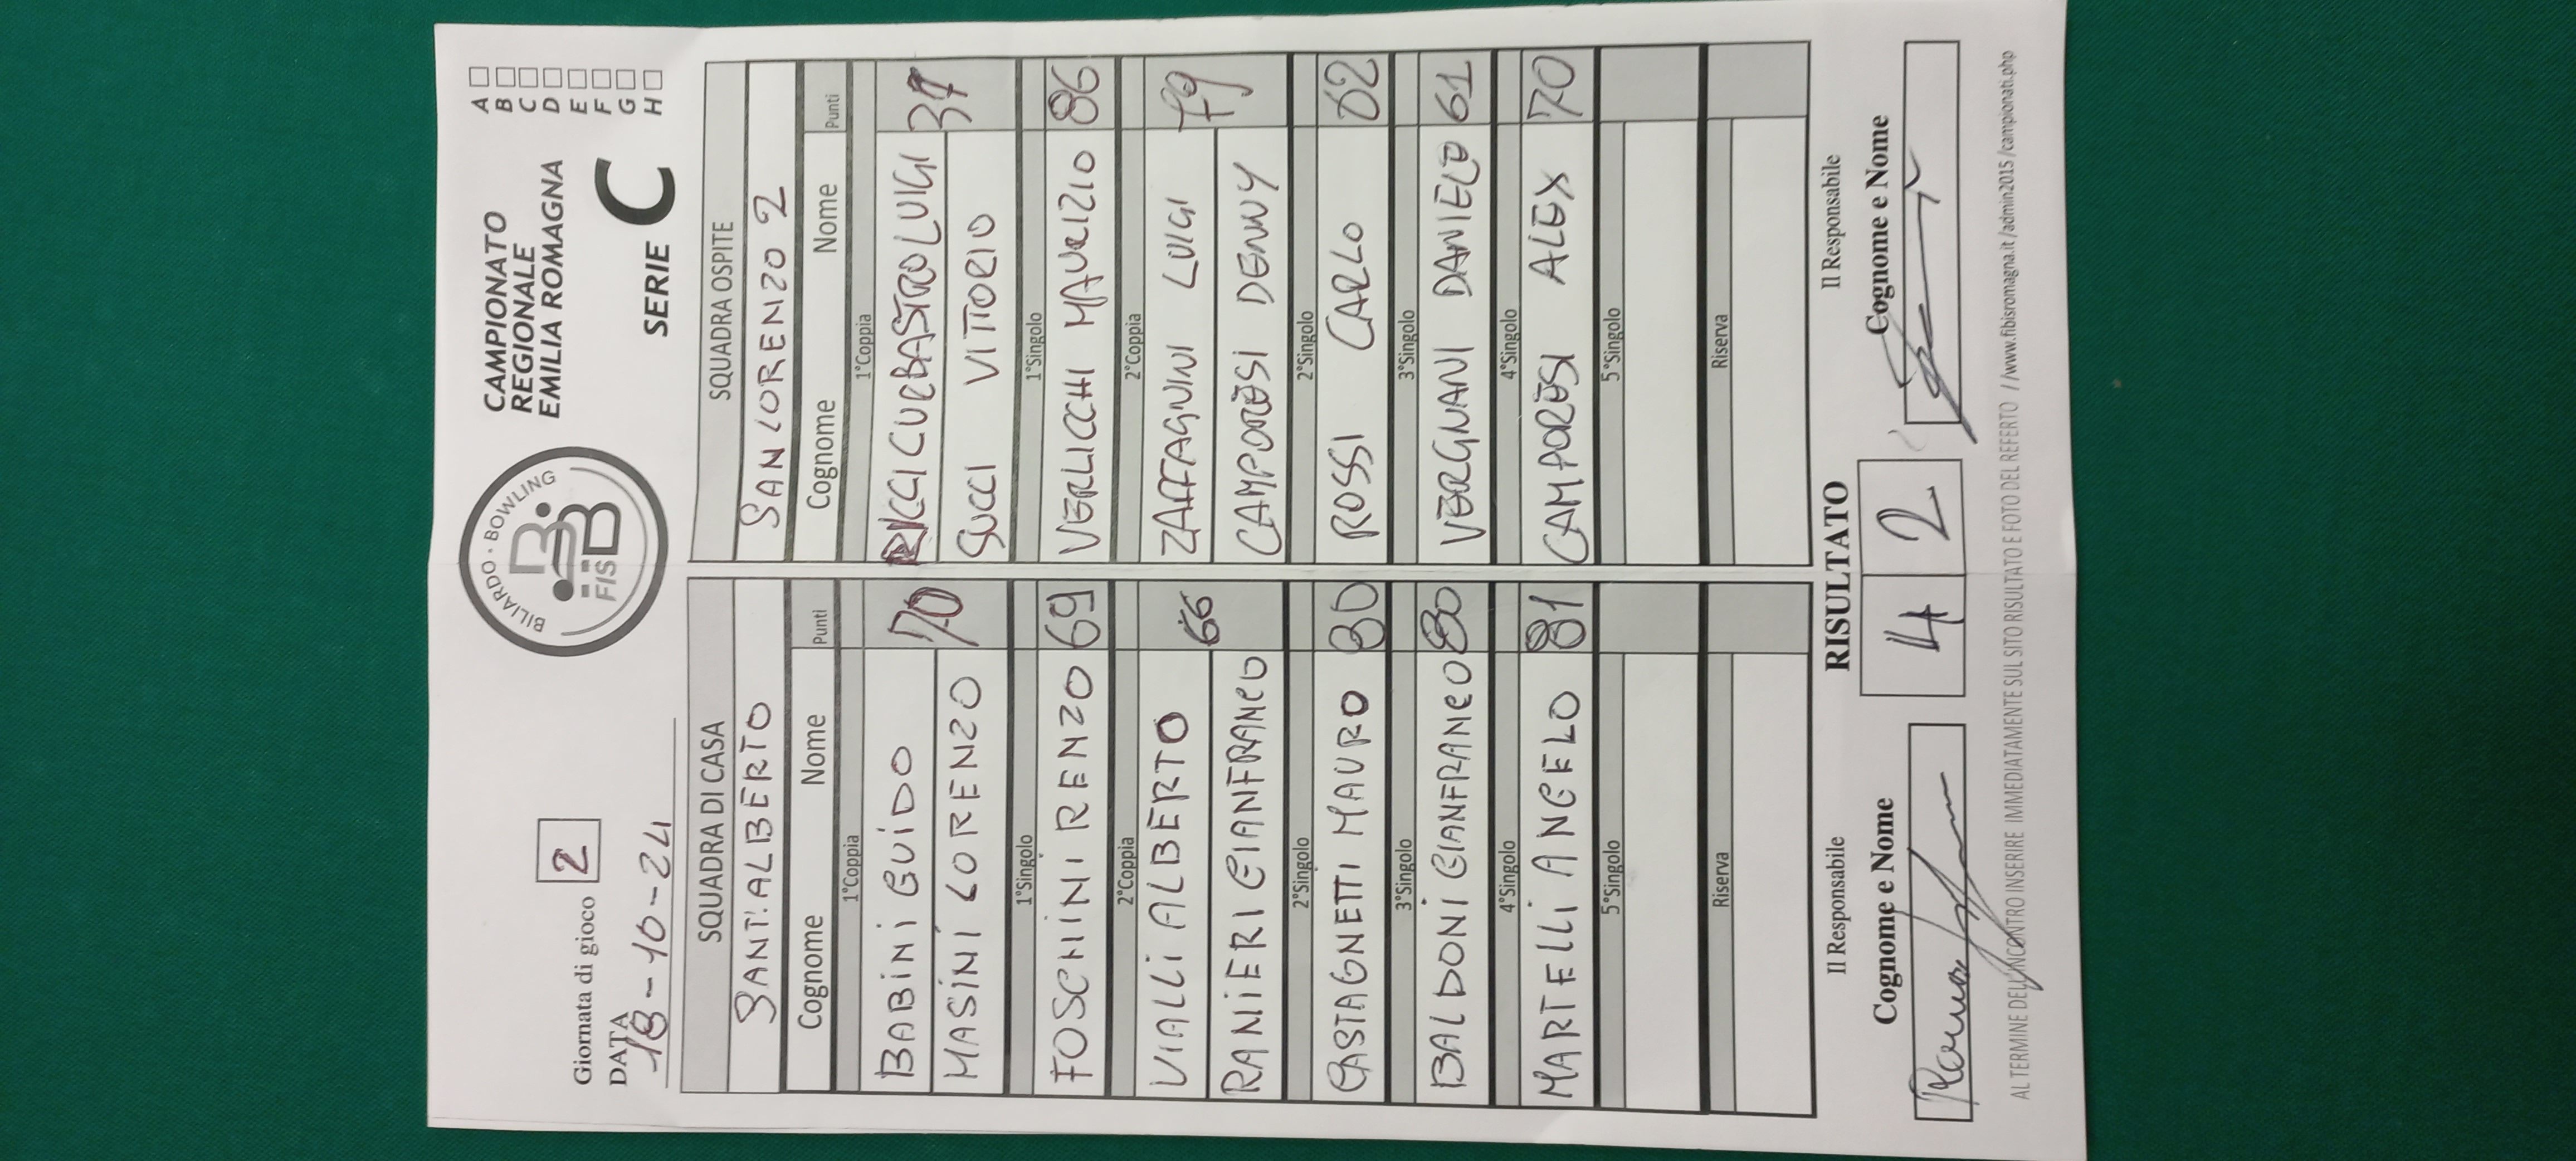 BILIARDO · BOWLING
FISBB
CAMPIONATO
REGIONALE
EMILIA ROMAGNA
SERIE C
A
B
C
D
E
F
G
H
Giornata di gioco 2
DATA
18-10-24
SQUADRA DI CASA
SANT'ALBERTO
Cognome Nome Punti
1°Coppia
BABINI GUIDO 70
MASINI LORENZO
1°Singolo
FOSCHINI RENZO 69
2°Coppia
VIALLI ALBERTO 66
RANIERI GIANFRANCO
2°Singolo
CASTAGNETTI MAURO 80
3°Singolo
BALDONI GIANFRANCO 80
4°Singolo
MARTELLI ANGELO 81
5°Singolo
Riserva
SQUADRA OSPITE
SAN LORENZO 2
Cognome Nome Punti
1°Coppia
RICCI CURBASTRO LUIGI
SUCCI VITTORIO
1°Singolo
VERLICCHI MAURIZIO 86
2°Coppia
ZAFFAGNINI LUIGI 79
CAMPORESI DENNY
2°Singolo
ROSSI CARLO 62
3°Singolo
VERGNANI DANIELE 61
4°Singolo
CAMPORESI ALEX 70
5°Singolo
Riserva
RISULTATO
4 2
Il Responsabile
Cognome e Nome
Il Responsabile
Cognome e Nome
AL TERMINE DELL'INCONTRO INSERIRE IMMEDIATAMENTE SUL SITO RISULTATO E FOTO DEL REFERTO //www.fibisromagna.it/admin2015/campionati.php